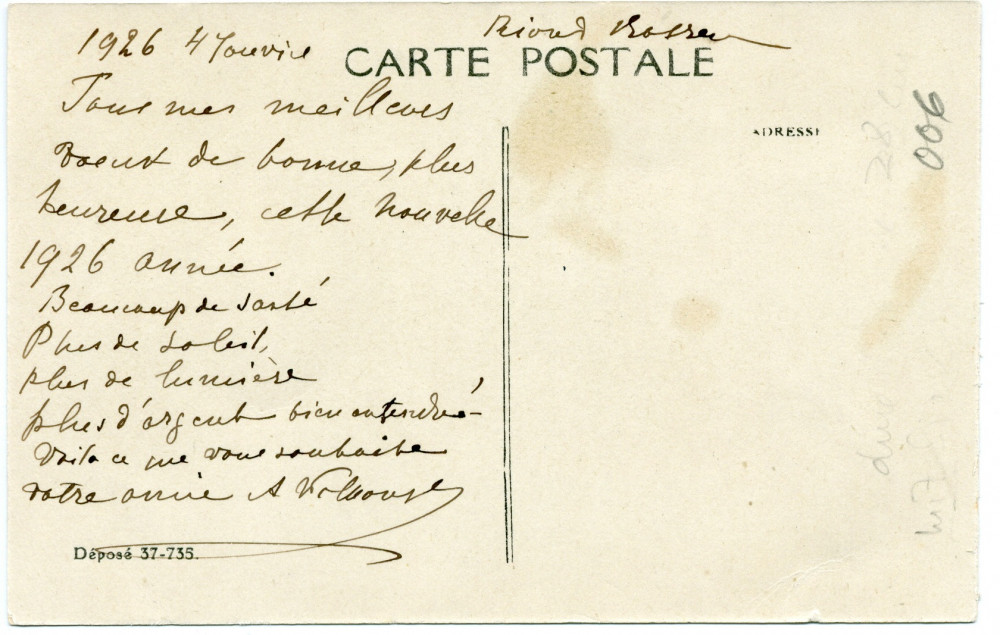 1926 4 Janvier
CARTE POSTALE
ADRESSE
Tous mes meilleurs
vœux de bonne, plus
heureuse, cette nouvelle
1926 année.
Beaucoup de santé
Plus de soleil,
plus de lumière
plus d'argent bien entendu -
Voilà ce que vous souhaite
votre amie A
Déposé 37-735.
006